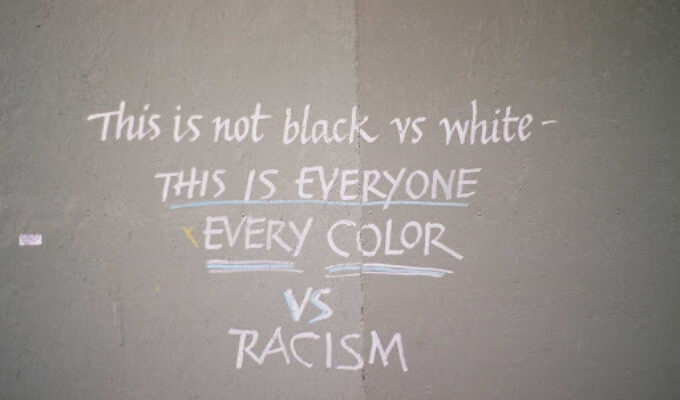 This is not black vs white -
THIS IS EVERYONE
EVERY COLOR
VS
RACISM